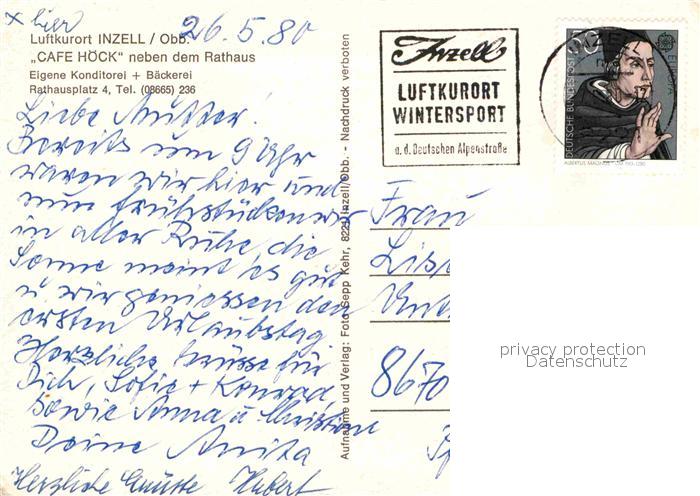 x hier 26.5.80
Luftkurort INZELL / Obb.
„CAFE HÖCK" neben dem Rathaus
Eigene Konditorei + Bäckerei
Rathausplatz 4, Tel. (08665) 236
Liebe Mutter!
Bereits um 9 Uhr
waren wir hier und
nun frühstücken wir
in aller Ruhe, die
Sonne meint es gut
u. wir geniessen den
ersten Urlaubstag.
Herzliche Grüsse für
Dich, Sofie + Konrad,
sowie Anna u. Christian
Deine Anita
Herzliche Grüsse Hubert
Aufnahme und Verlag: Foto Sepp Kehr, 8221 Inzell/Obb. - Nachdruck verboten
Inzell
LUFTKURORT
WINTERSPORT
a. d. Deutschen Alpenstraße
DEUTSCHE BUNDESPOST
EUROPA
ALBERTUS MAGNUS
Frau
8670
privacy protection
Datenschutz